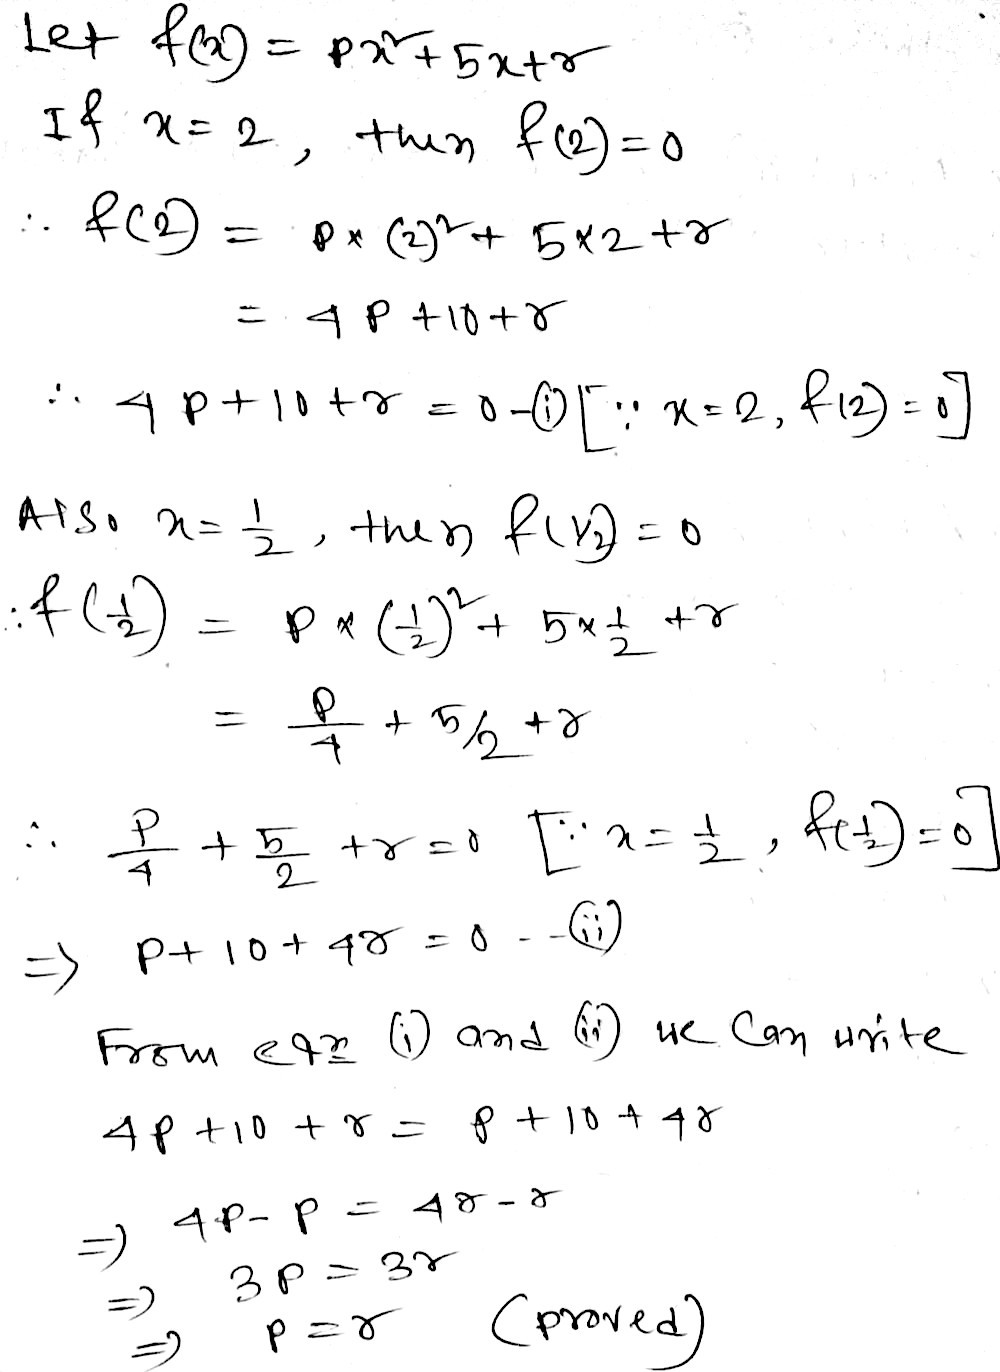 Let f(x) = px² + 5x + r
If x = 2, then f(2) = 0
∴ f(2) = p × (2)² + 5×2 + r
= 4p + 10 + r
∴ 4p + 10 + r = 0 -(i) [∵ x = 2, f(2) = 0]
Also x = 1/2, then f(1/2) = 0
∴ f(1/2) = p × (1/2)² + 5 × 1/2 + r
= p/4 + 5/2 + r
∴ p/4 + 5/2 + r = 0 [∵ x = 1/2, f(1/2) = 0]
=> p + 10 + 4r = 0 --(ii)
From eqn (i) and (ii) we Can write
4p + 10 + r = p + 10 + 4r
=> 4p - p = 4r - r
=> 3p = 3r
=> p = r (proved)